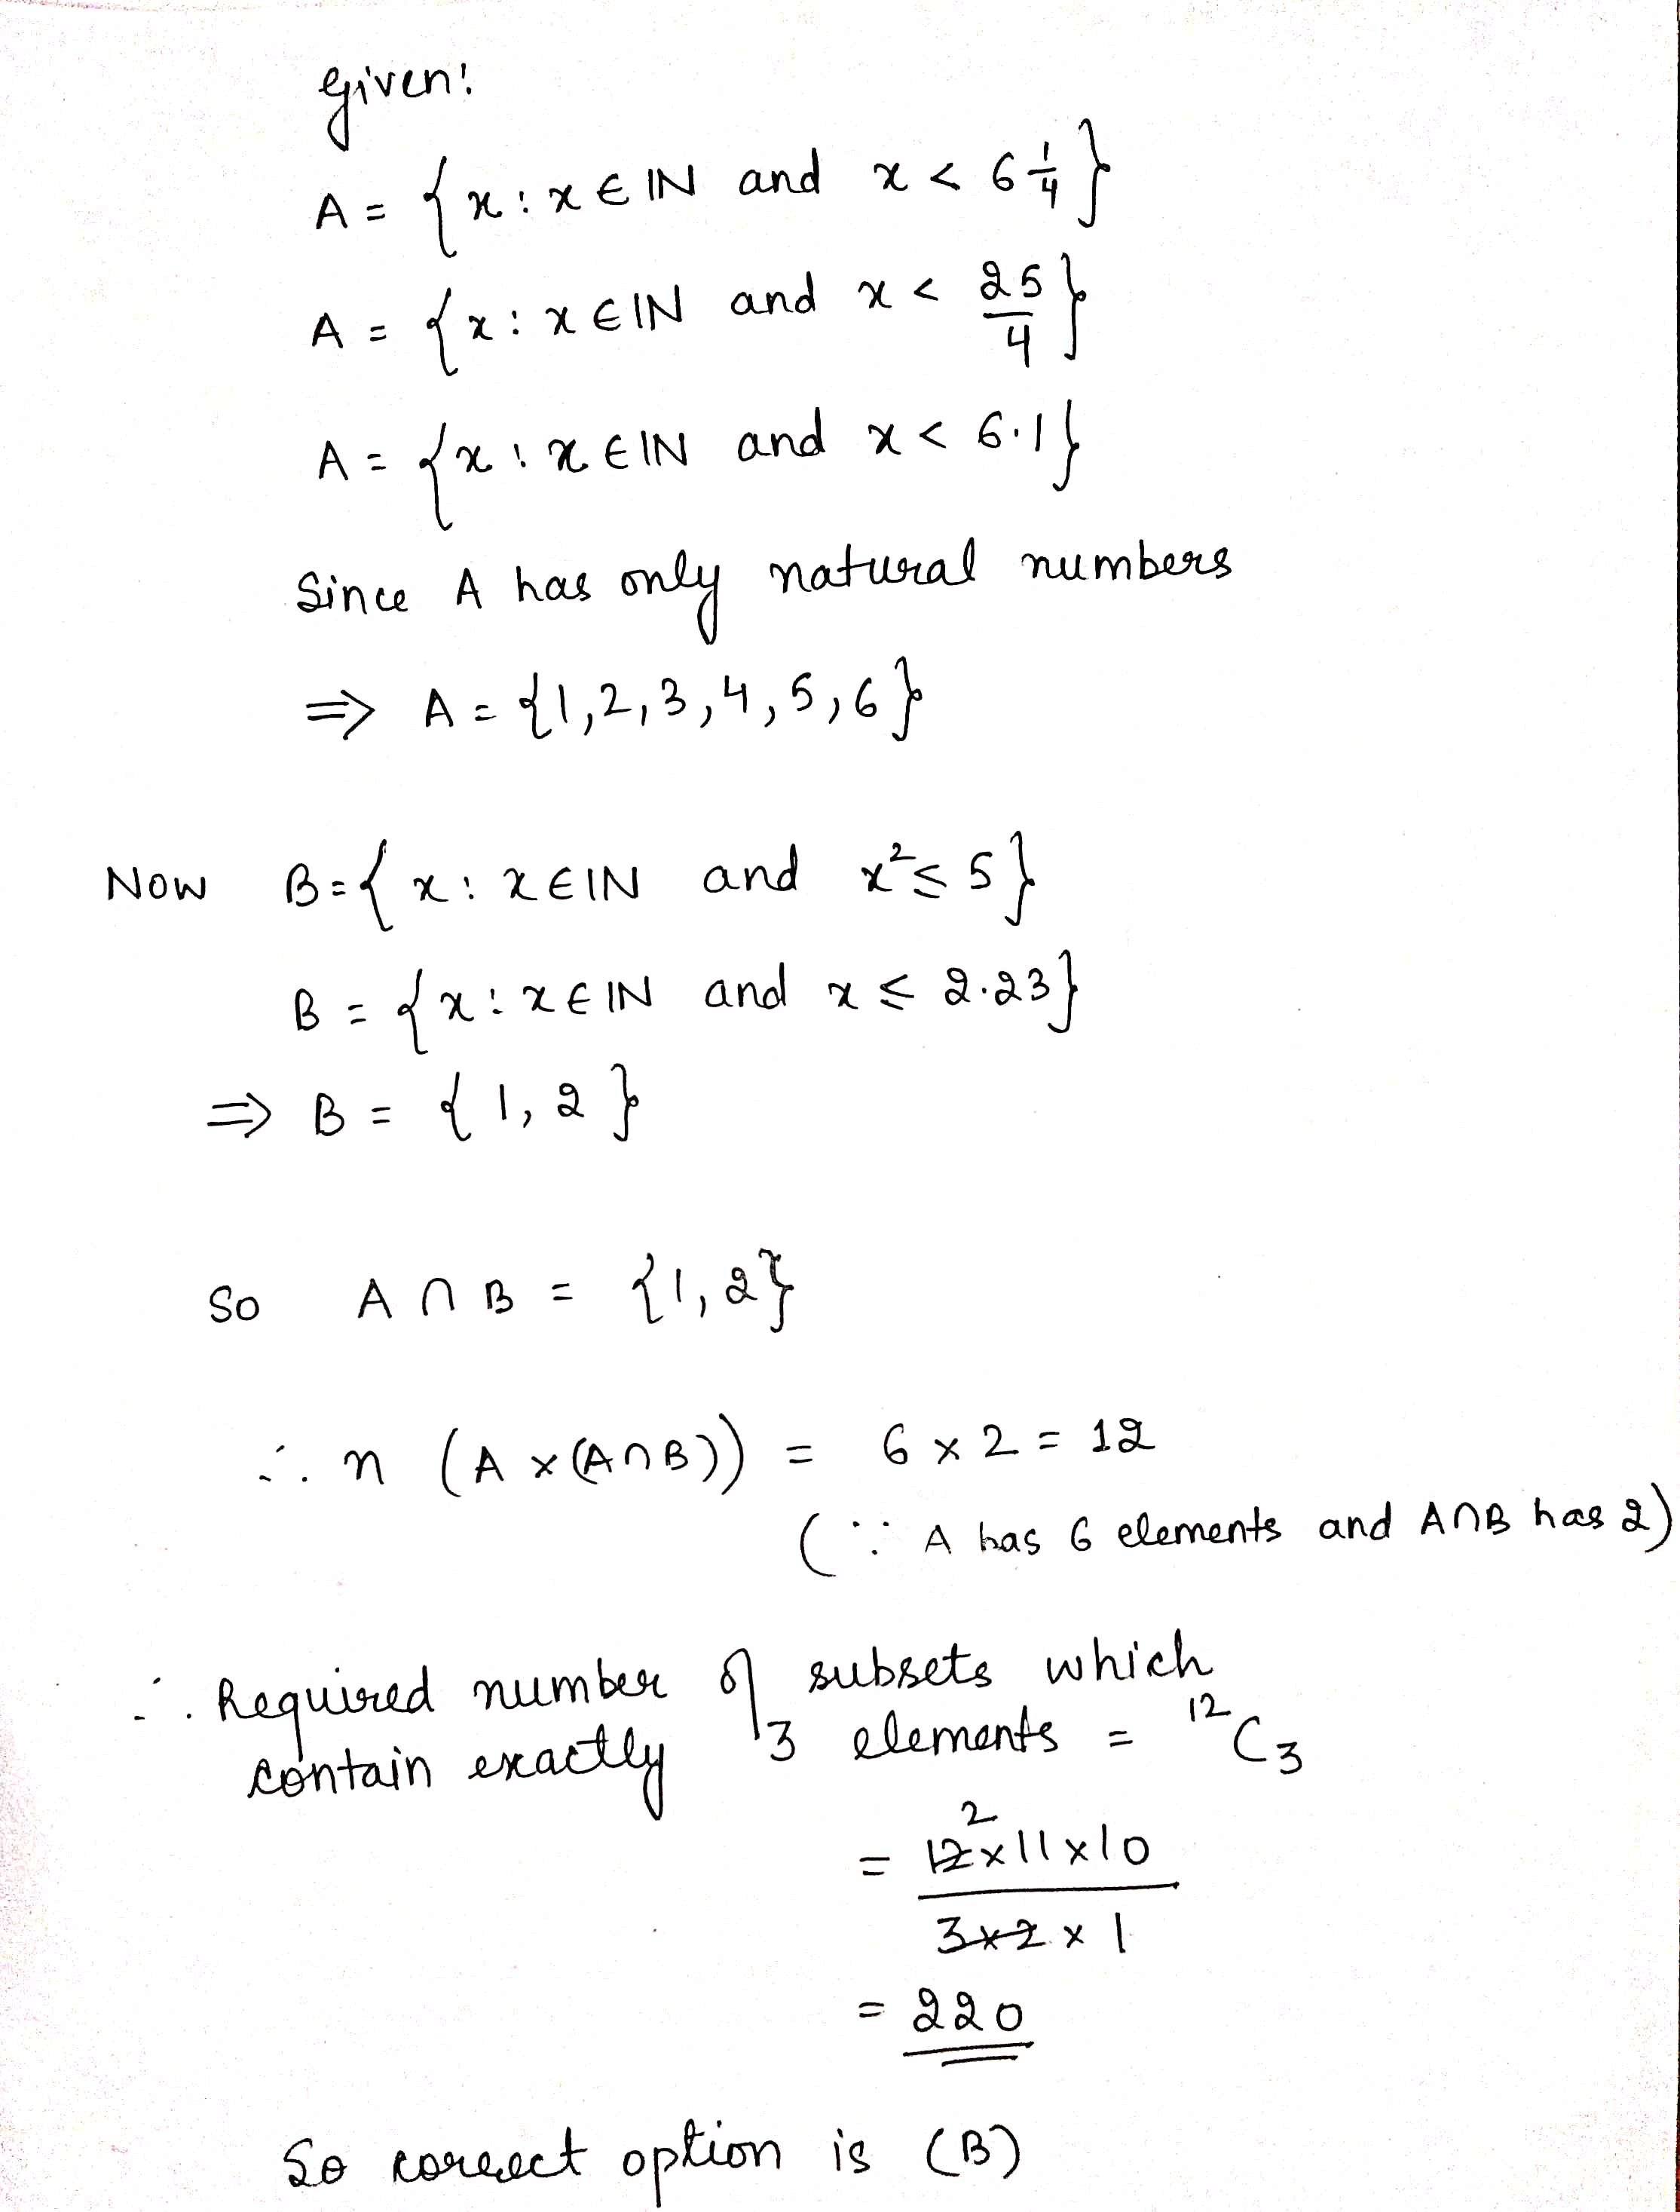 given:
A = {x : x ∈ IN and x < 6 1/4}
A = {x : x ∈ IN and x < 25/4}
A = {x : x ∈ IN and x < 6.1}
Since A has only natural numbers
⇒ A = {1,2,3,4,5,6}
Now B = {x : x ∈ IN and x² ≤ 5}
B = {x : x ∈ IN and x ≤ 2.23}
⇒ B = {1, 2}
So A ∩ B = {1, 2}
∴ n (A × (A∩B)) = 6 × 2 = 12
(∵ A has 6 elements and A∩B has 2)
∴ Required number of subsets which
contain exactly 3 elements = ¹²C₃
2
= 12 × 11 × 10
3 × 2 × 1
= 220
So correct option is (B)